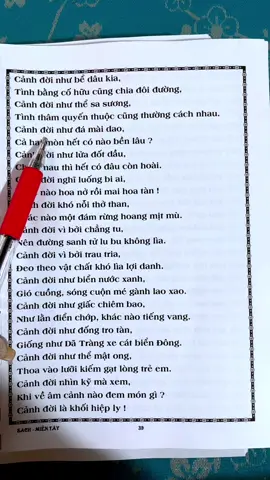 Cảnh đời như bể dâu kia,
Tình bằng cố hữu cũng chia đôi đường,
Cảnh đời như thể sa sương,
Tình thâm quyến thuộc cũng thường cách nhau.
Cảnh đời như đá mài dao,
Cả hai mòn hết có nào bền lâu ?
Cảnh đời như lửa đốt dầu,
nau thì hết có đâu còn hoài.
đời nghĩ luống bi ai,
nào hoa nở rồi mai hoa tàn !
đời khó nỗi thở than,
nào một đám rừng hoang mịt mù.
Cảnh đời vì bởi chẳng tu,
Nên đường sanh tử lu bu không lìa.
Cảnh đời vì bởi trau tria,
Đeo theo vật chất khó lìa lợi danh.
Cảnh đời như biển nước xanh,
Gió cuồng, sóng cuộn mé gành lao xao.
Cảnh đời như giấc chiêm bao,
Như lằn điển chớp, khác nào tiếng vang.
Cảnh đời như đống tro tàn,
Giống như Dã Tràng xe cát biển Đông.
Cảnh đời như thể mật ong,
Thoa vào lưỡi kiếm gạt lòng trẻ em.
Cảnh đời nhìn kỹ mà xem,
Khi về âm cảnh nào đem món gì ?
Cảnh đời là khối hiệp ly !
39